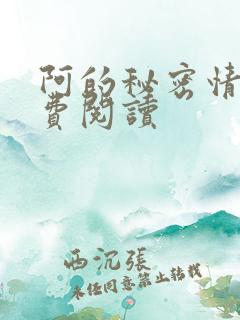 阿的秘密情
費閱讀
西沉張
未經同意禁止轉載